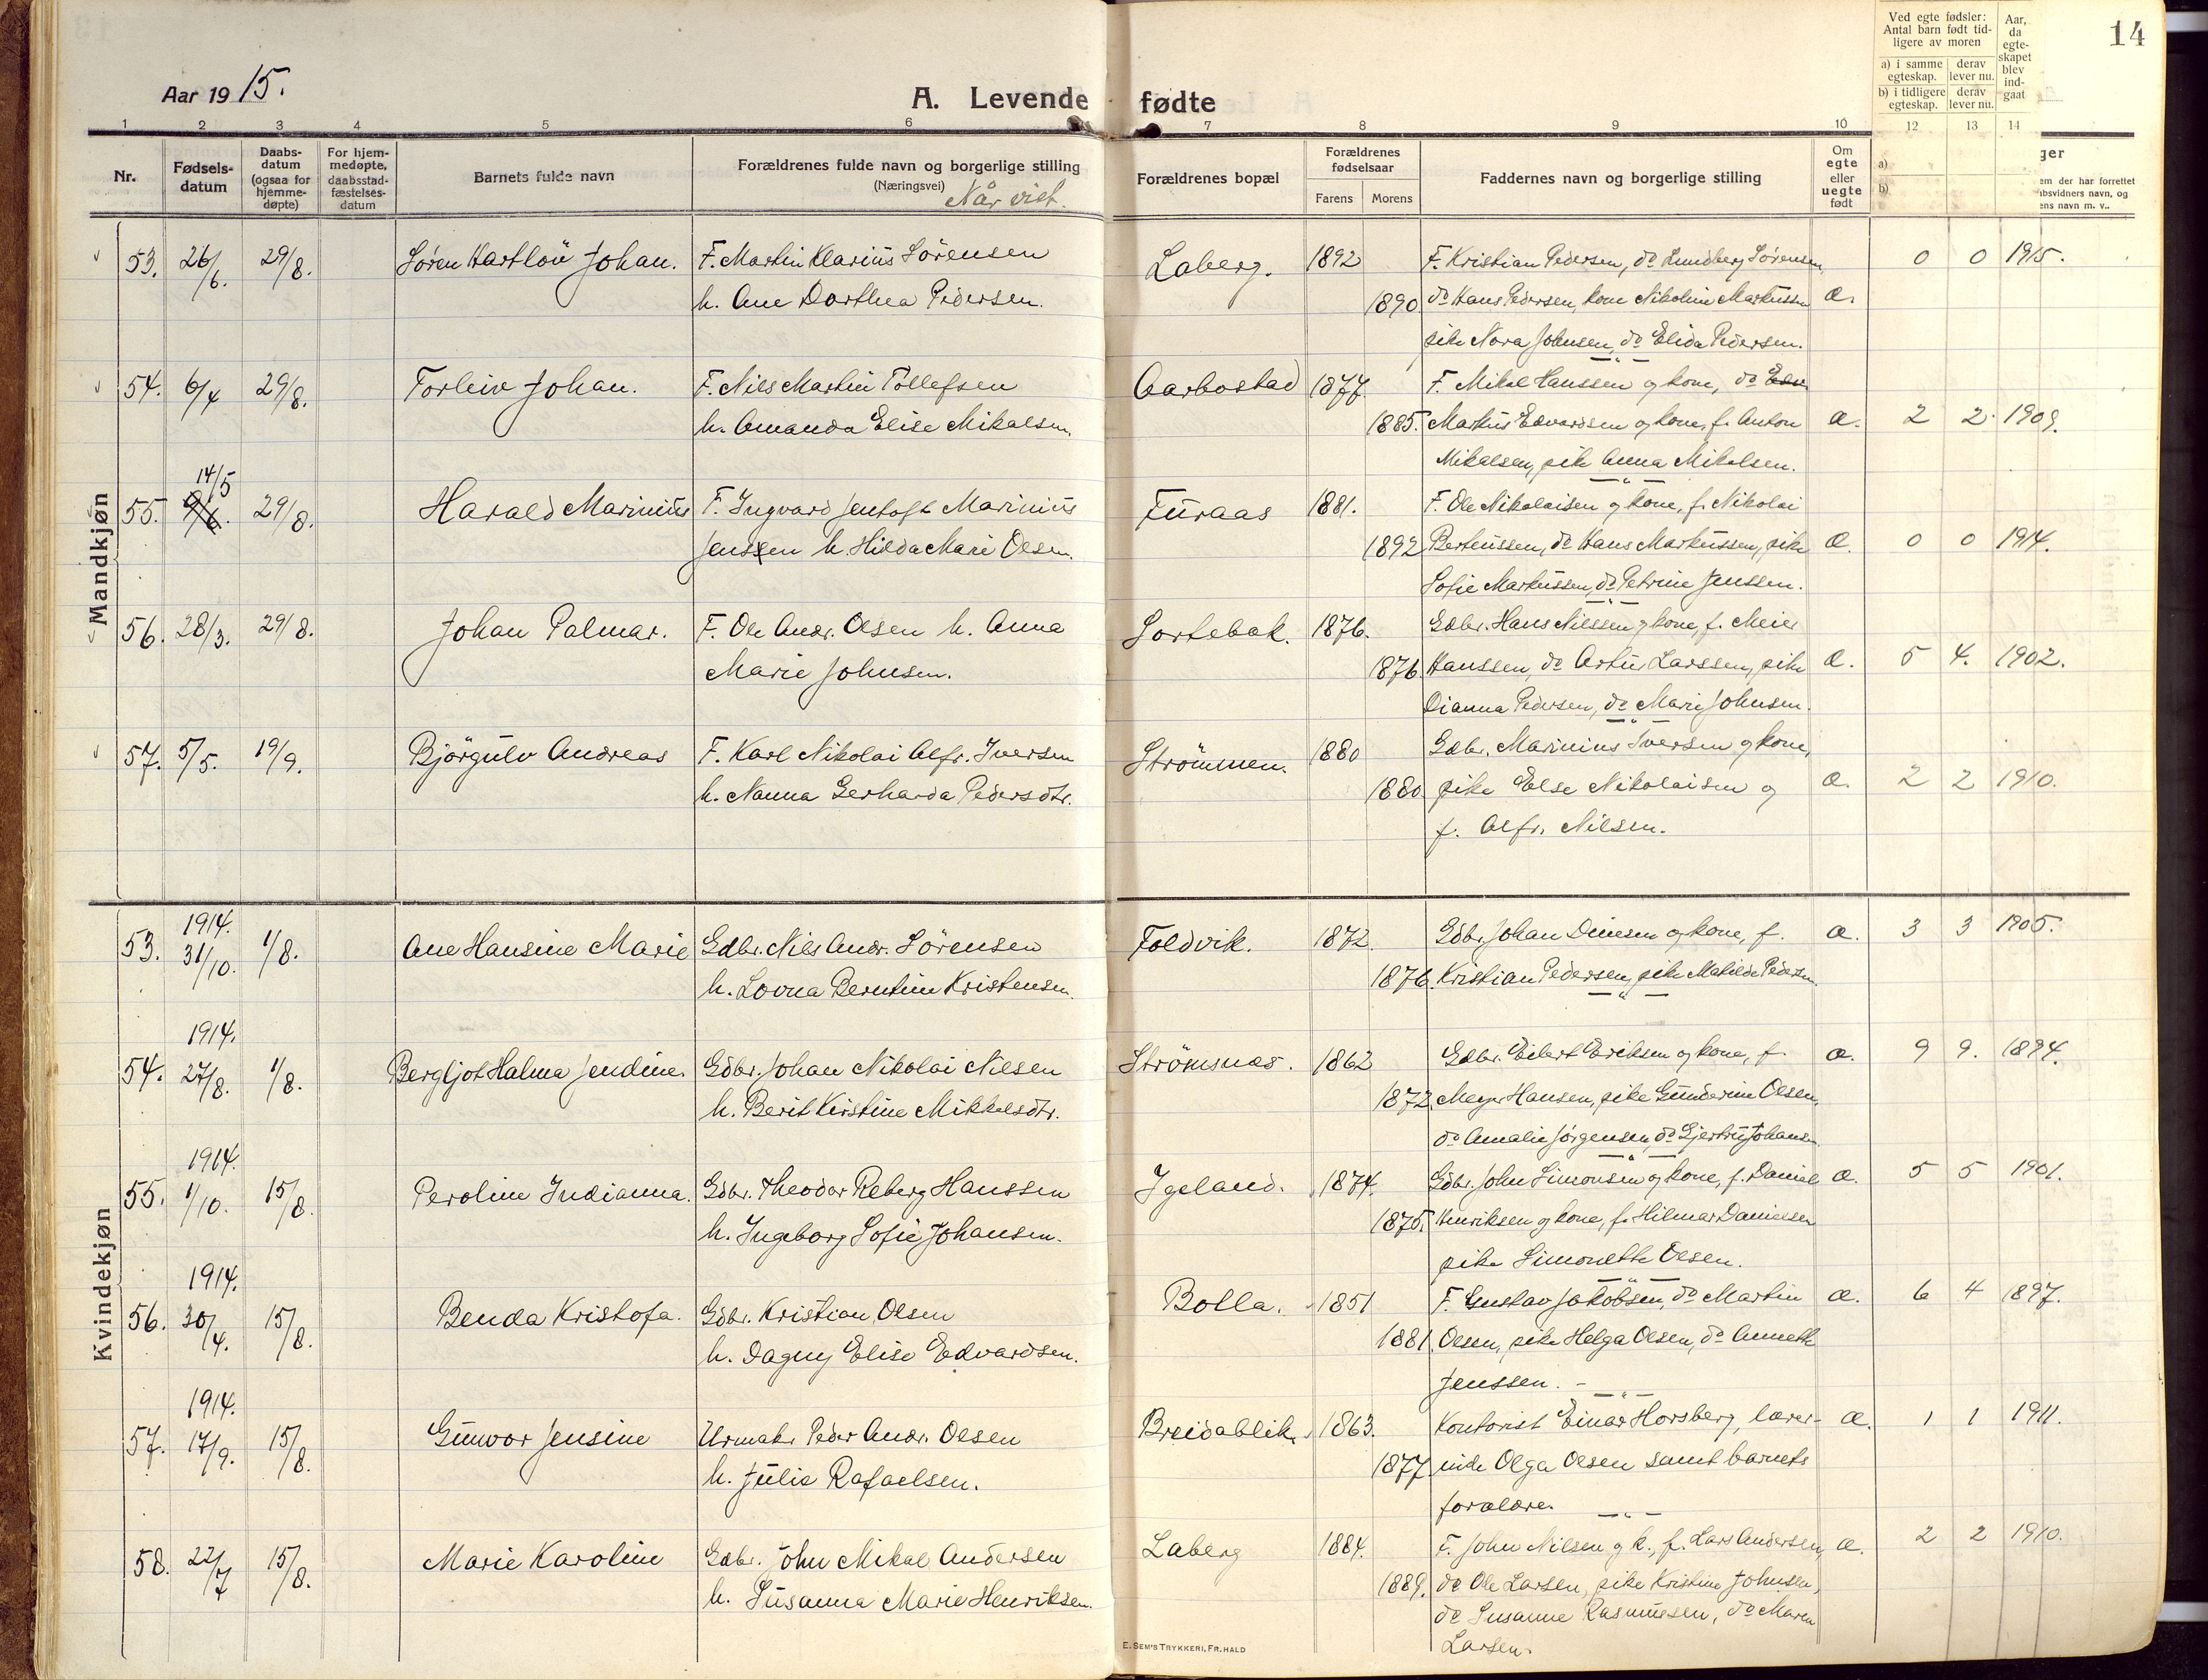 14
Aar 19 15.
A. Levende fødte
Ved egte fødsler: Antal barn født tidligere av moren
a) i samme egteskap. derav lever nu.
b) i tidligere egteskap. derav lever nu.
Aar, da egteskapet blev indgaat
1 2 3 4 5 6 7 8 9 10 12 13 14
Nr.
Fødselsdatum
Daabsdatum (ogsaa for hjemmedøpte)
For hjemmedøpte, daabsstadfæstelsesdatum
Barnets fulde navn
Forældrenes fulde navn og borgerlige stilling
(Næringsvei)
Når vist.
Forældrenes bopæl
Forældrenes fødselsaar
Farens Morens
Faddernes navn og borgerlige stilling
Om egte eller uegte født
a)
b)
ger
em der har forrettet
absvidners navn, og
ens navn m. v..
Mandkjøn
53. 26/6. 29/8. Søren Hartløv Johan. F. Martin Klarius Sørensen Laberg. 1892 F. Kristian Pedersen, do Lundberg Sørensen, 0 0 1915.
h. Ane Dorthea Pedersen. 1890 do Hans Pedersen, kone Nikoline Markussen æ.
pike Nora Johnsen, do Elida Pedersen.
54. 6/4 29/8. Torleiv Johan. F. Nils Martin Tollefsen Aarbostad 1877. F. Mikal Hanssen og kone, do Edv
h. Amanda Elise Mikalsen. 1885. Markus Edvardsen og kone, f. Anton æ. 2 2. 1909.
Mikalsen, pike Anna Mikalsen.
14/5
55. 9/6. 29/8. Harald Marinius F. Ingvard Jentoft Marinius Furaas 1881. F. Ole Nikolaisen og kone, f. Nikolai
Jenssen h. Hilda Marie Olsen. 1892 Berteussen, do Hans Markussen, pike æ. 0 0 1914.
Sofie Markussen, do Petrine Jenssen.
56. 28/3. 29/8. Johan Palmar. F. Ole Andr. Olsen h. Anna Sortebak. 1876. Gdbr. Hans Nilssen og kone, f. Meier
Marie Johnsen. 1876. Hanssen, do Artur Larssen, pike æ. 5 4. 1902.
Dianna Pedersen, do Marie Johnsen.
57. 5/5. 19/9. Bjørgulv Andreas F. Karl Nikolai Alfr. Iversen Strømmen. 1880 Gdbr. Marinius Iversen og kone,
h. Nanna Gerharda Pedersdtr. 1880. pike Else Nikolaisen og æ. 2 2 1910.
f. Alfr. Nilsen.
Kvindekjøn
1914.
53. 31/10. 1/8. Ane Hansine Marie Gdbr. Nils Andr. Sørensen Foldvik. 1872. Gdbr. Johan Dinesen og kone, f. æ. 3 3 1905.
h. Lovna Berntine Kristensen. 1876. Kristian Pedersen, pike Matilde Pedersen.
1914.
54. 27/8. 1/8. Bergljot Halma Jendine. Gdbr. Johan Nikolai Nilsen Strømsnæs. 1862 Gdbr. Eilert Eriksen og kone, f. æ. 9 9. 1894.
h. Berit Kirstine Mikkelsdtr. 1872. Meyer Hansen, pike Gunderine Olsen,
do Amalie Jørgensen, do Gjertru Johansen.
1914.
55. 1/10. 15/8. Peroline Indianna. Gdbr. Theodor Reberg Hanssen Igeland. 1874. Gdbr. John Simonsen og kone, f. Daniel æ. 5 5 1901.
h. Ingeborg Sofie Johansen. 1875. Henriksen og kone, f. Hilmar Danielsen
pike Simonette Olsen.
1914.
56. 30/4. 15/8. Benda Kristofa. Gdbr. Kristian Olsen Bolla. 1851 F. Gustav Jakobsen, do Martin æ. 6 4 1897.
h. Dagny Elise Edvardsen. 1881. Olsen, pike Helga Olsen, do Annette
Jenssen.
1914.
57. 17/9. 15/8. Gunvor Jensine Urmak. Peder Andr. Olsen Breidablik. 1863. Kontorist Einar Horsberg, lærer- æ. 1 1 1911.
h. Julie Rafaelsen. 1877 inde Olga Olsen samt barnets
forældre.
58. 22/7 15/8. Marie Karoline Gdbr. John Mikal Andersen Laberg 1884. F. John Nilsen og k., f. Lars Andersen, æ. 2 2 1910.
h. Susanna Marie Henriksen. 1889. do Ole Larsen, pike Kristine Johnsen,
do Susanne Rasmussen, do Maren
Larsen.
E. SEM'S TRYKKERI, FR. HALD